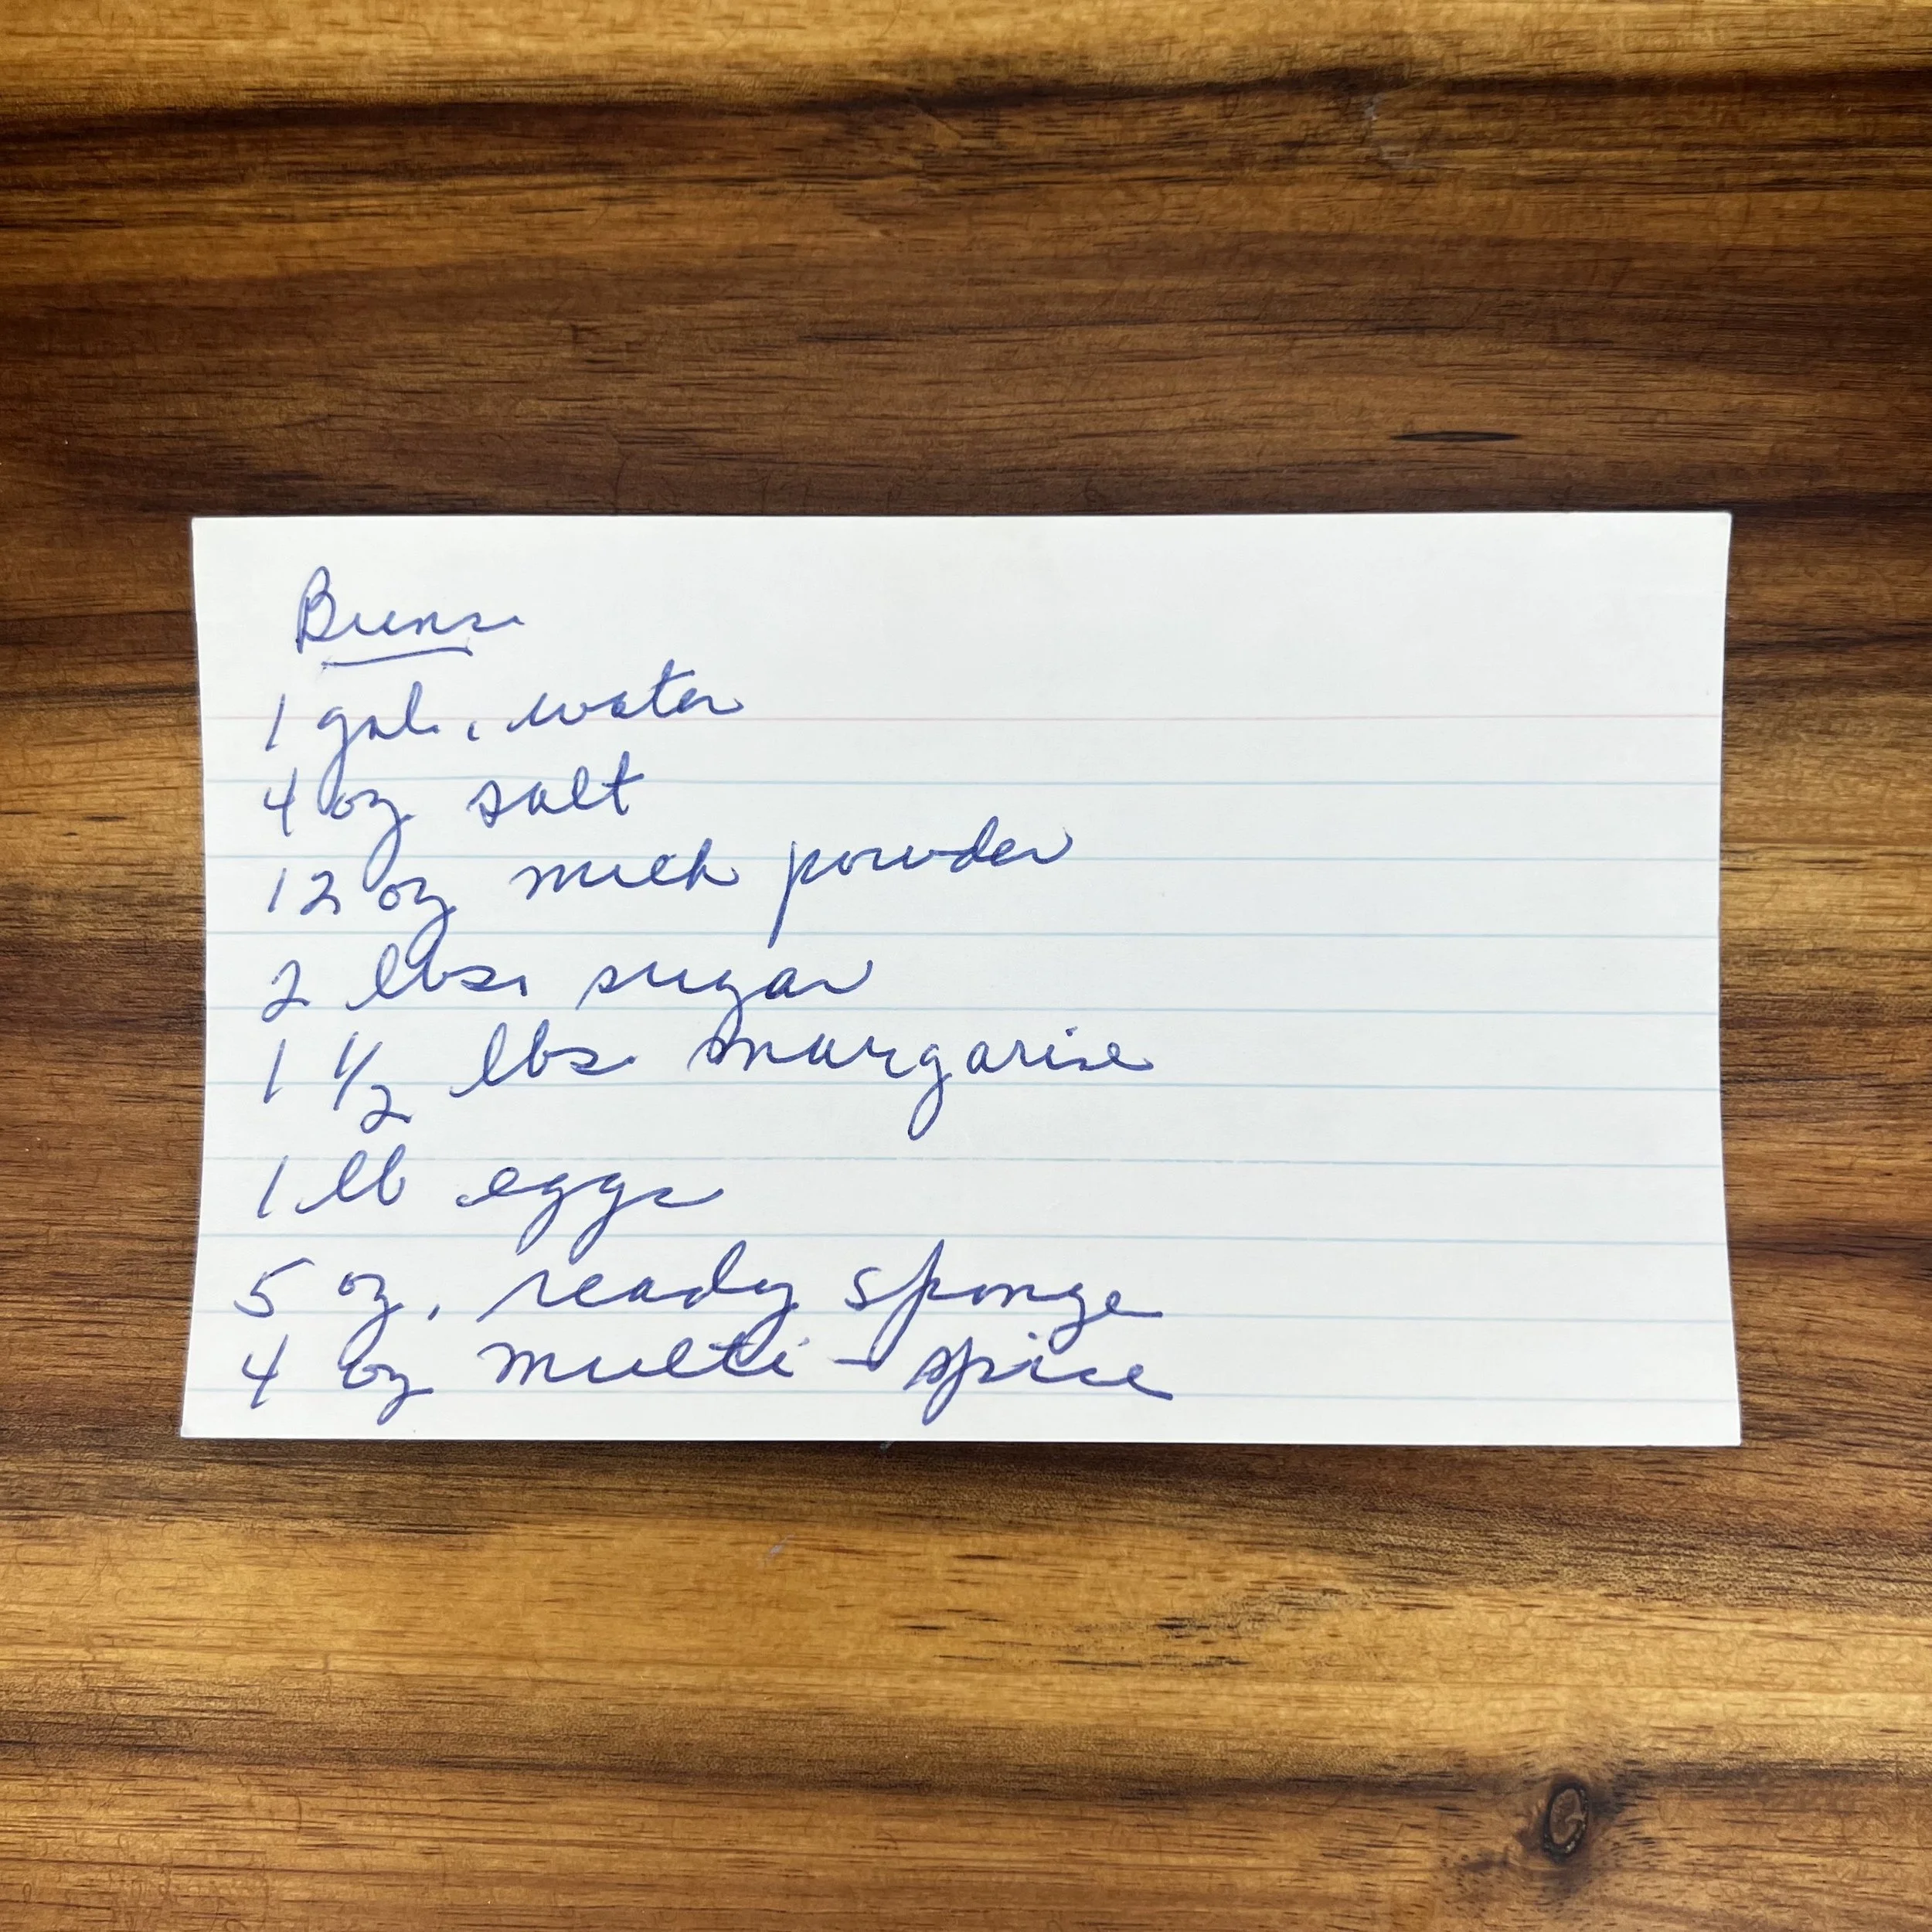 Buns
1 gal. water
4 oz salt
12 oz milk powder
2 lbs. sugar
1 1/2 lbs margarine
1 lb eggs
5 oz. ready sponge
4 oz multi-spice